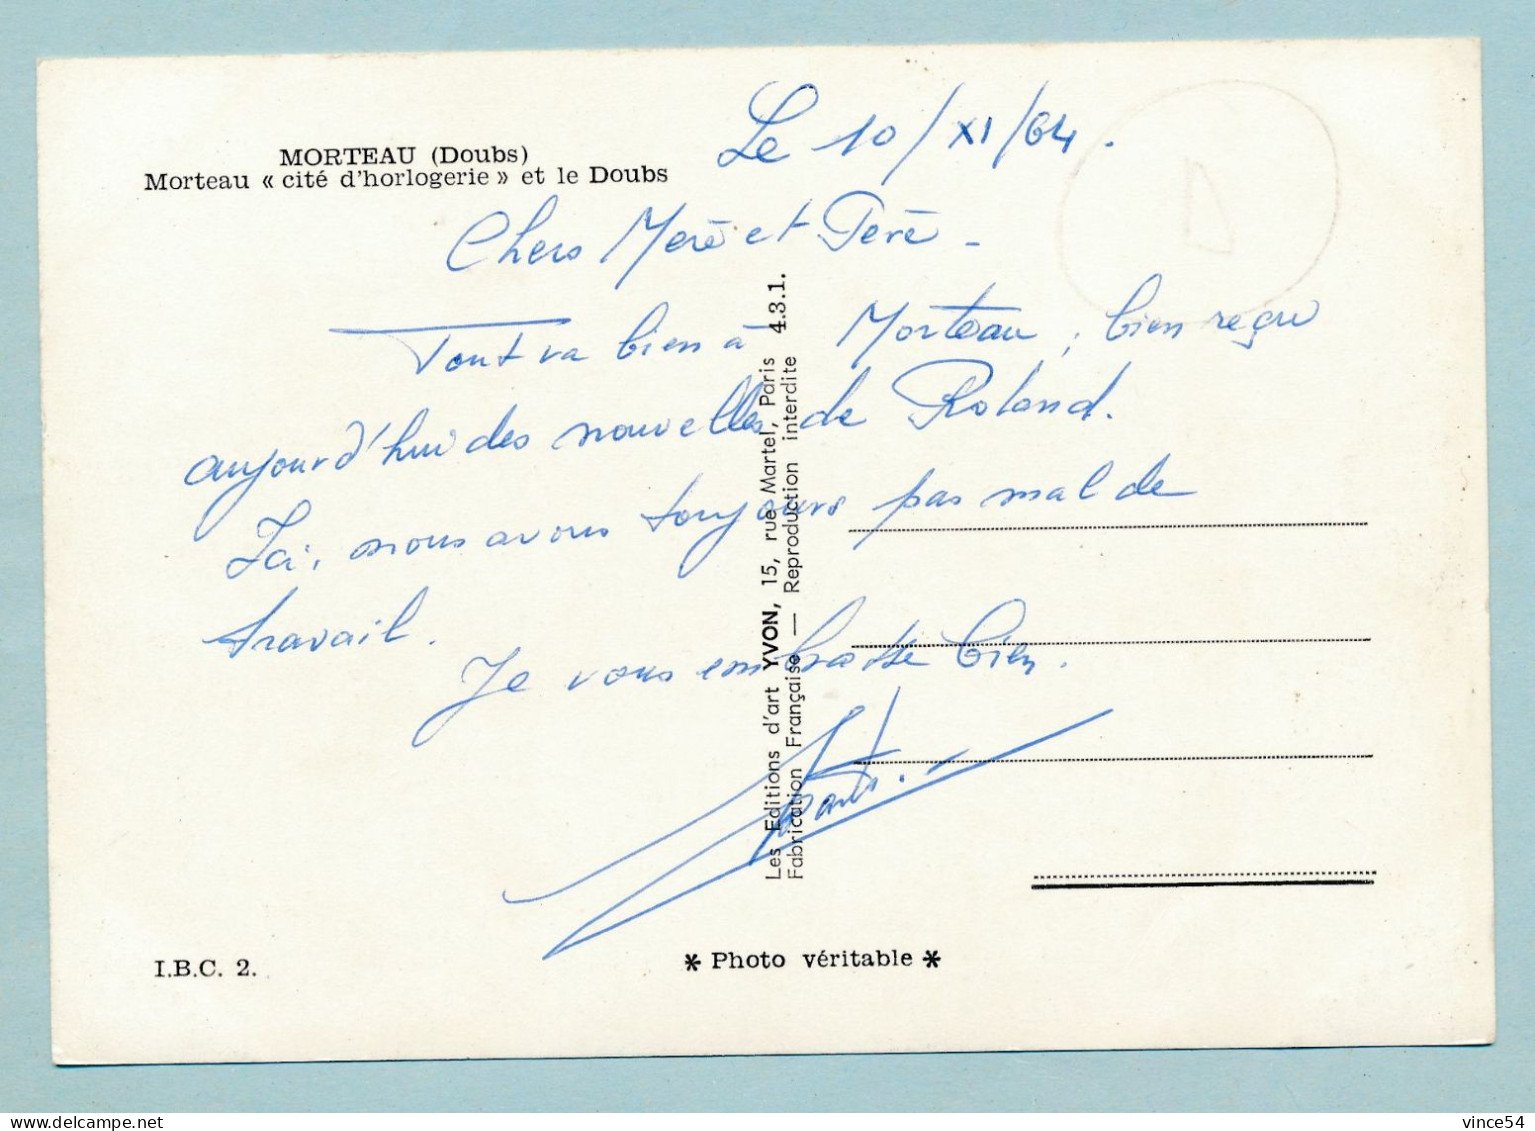 Le 10/XI/64.
MORTEAU (Doubs)
Morteau « cité d'horlogerie » et le Doubs
Chers Merē et Perē -
Tout va bien à Morteau ; bien reçu
aujourd'hui des nouvelles de Roland.
Ici, nous avons toujours pas mal de
travail.
Je vous embrasse bien.
Les Editions d'art YVON, 15, rue Martel, Paris 4.3.1.
Fabrication Française — Reproduction interdite
I.B.C. 2.
* Photo véritable *
vince54